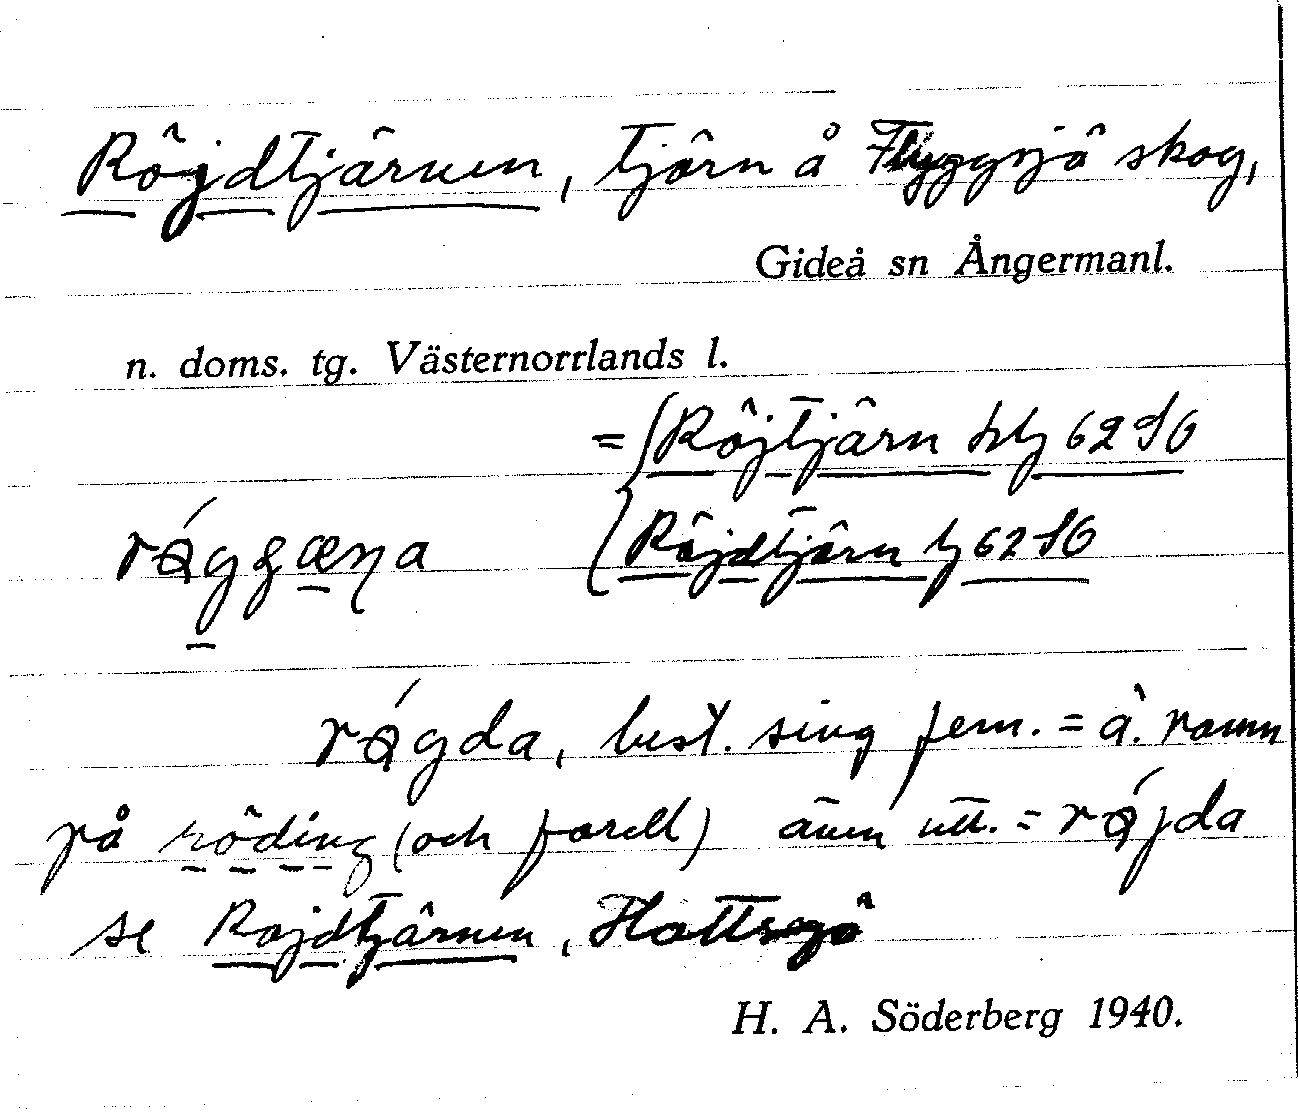 Röjdtjärnen, tjärn å Flyggsjö skog,
Gideå sn Ångermanl.
n. doms. tg. Västernorrlands l.
= Röjtjärn hlj 62 S6
Röjdtjärn lj 62 S6
best. sing fem. = ä. namn
på röding (och forell) även utt. =
se Rojdtjärnen, Hattsjö
H. A. Söderberg 1940.